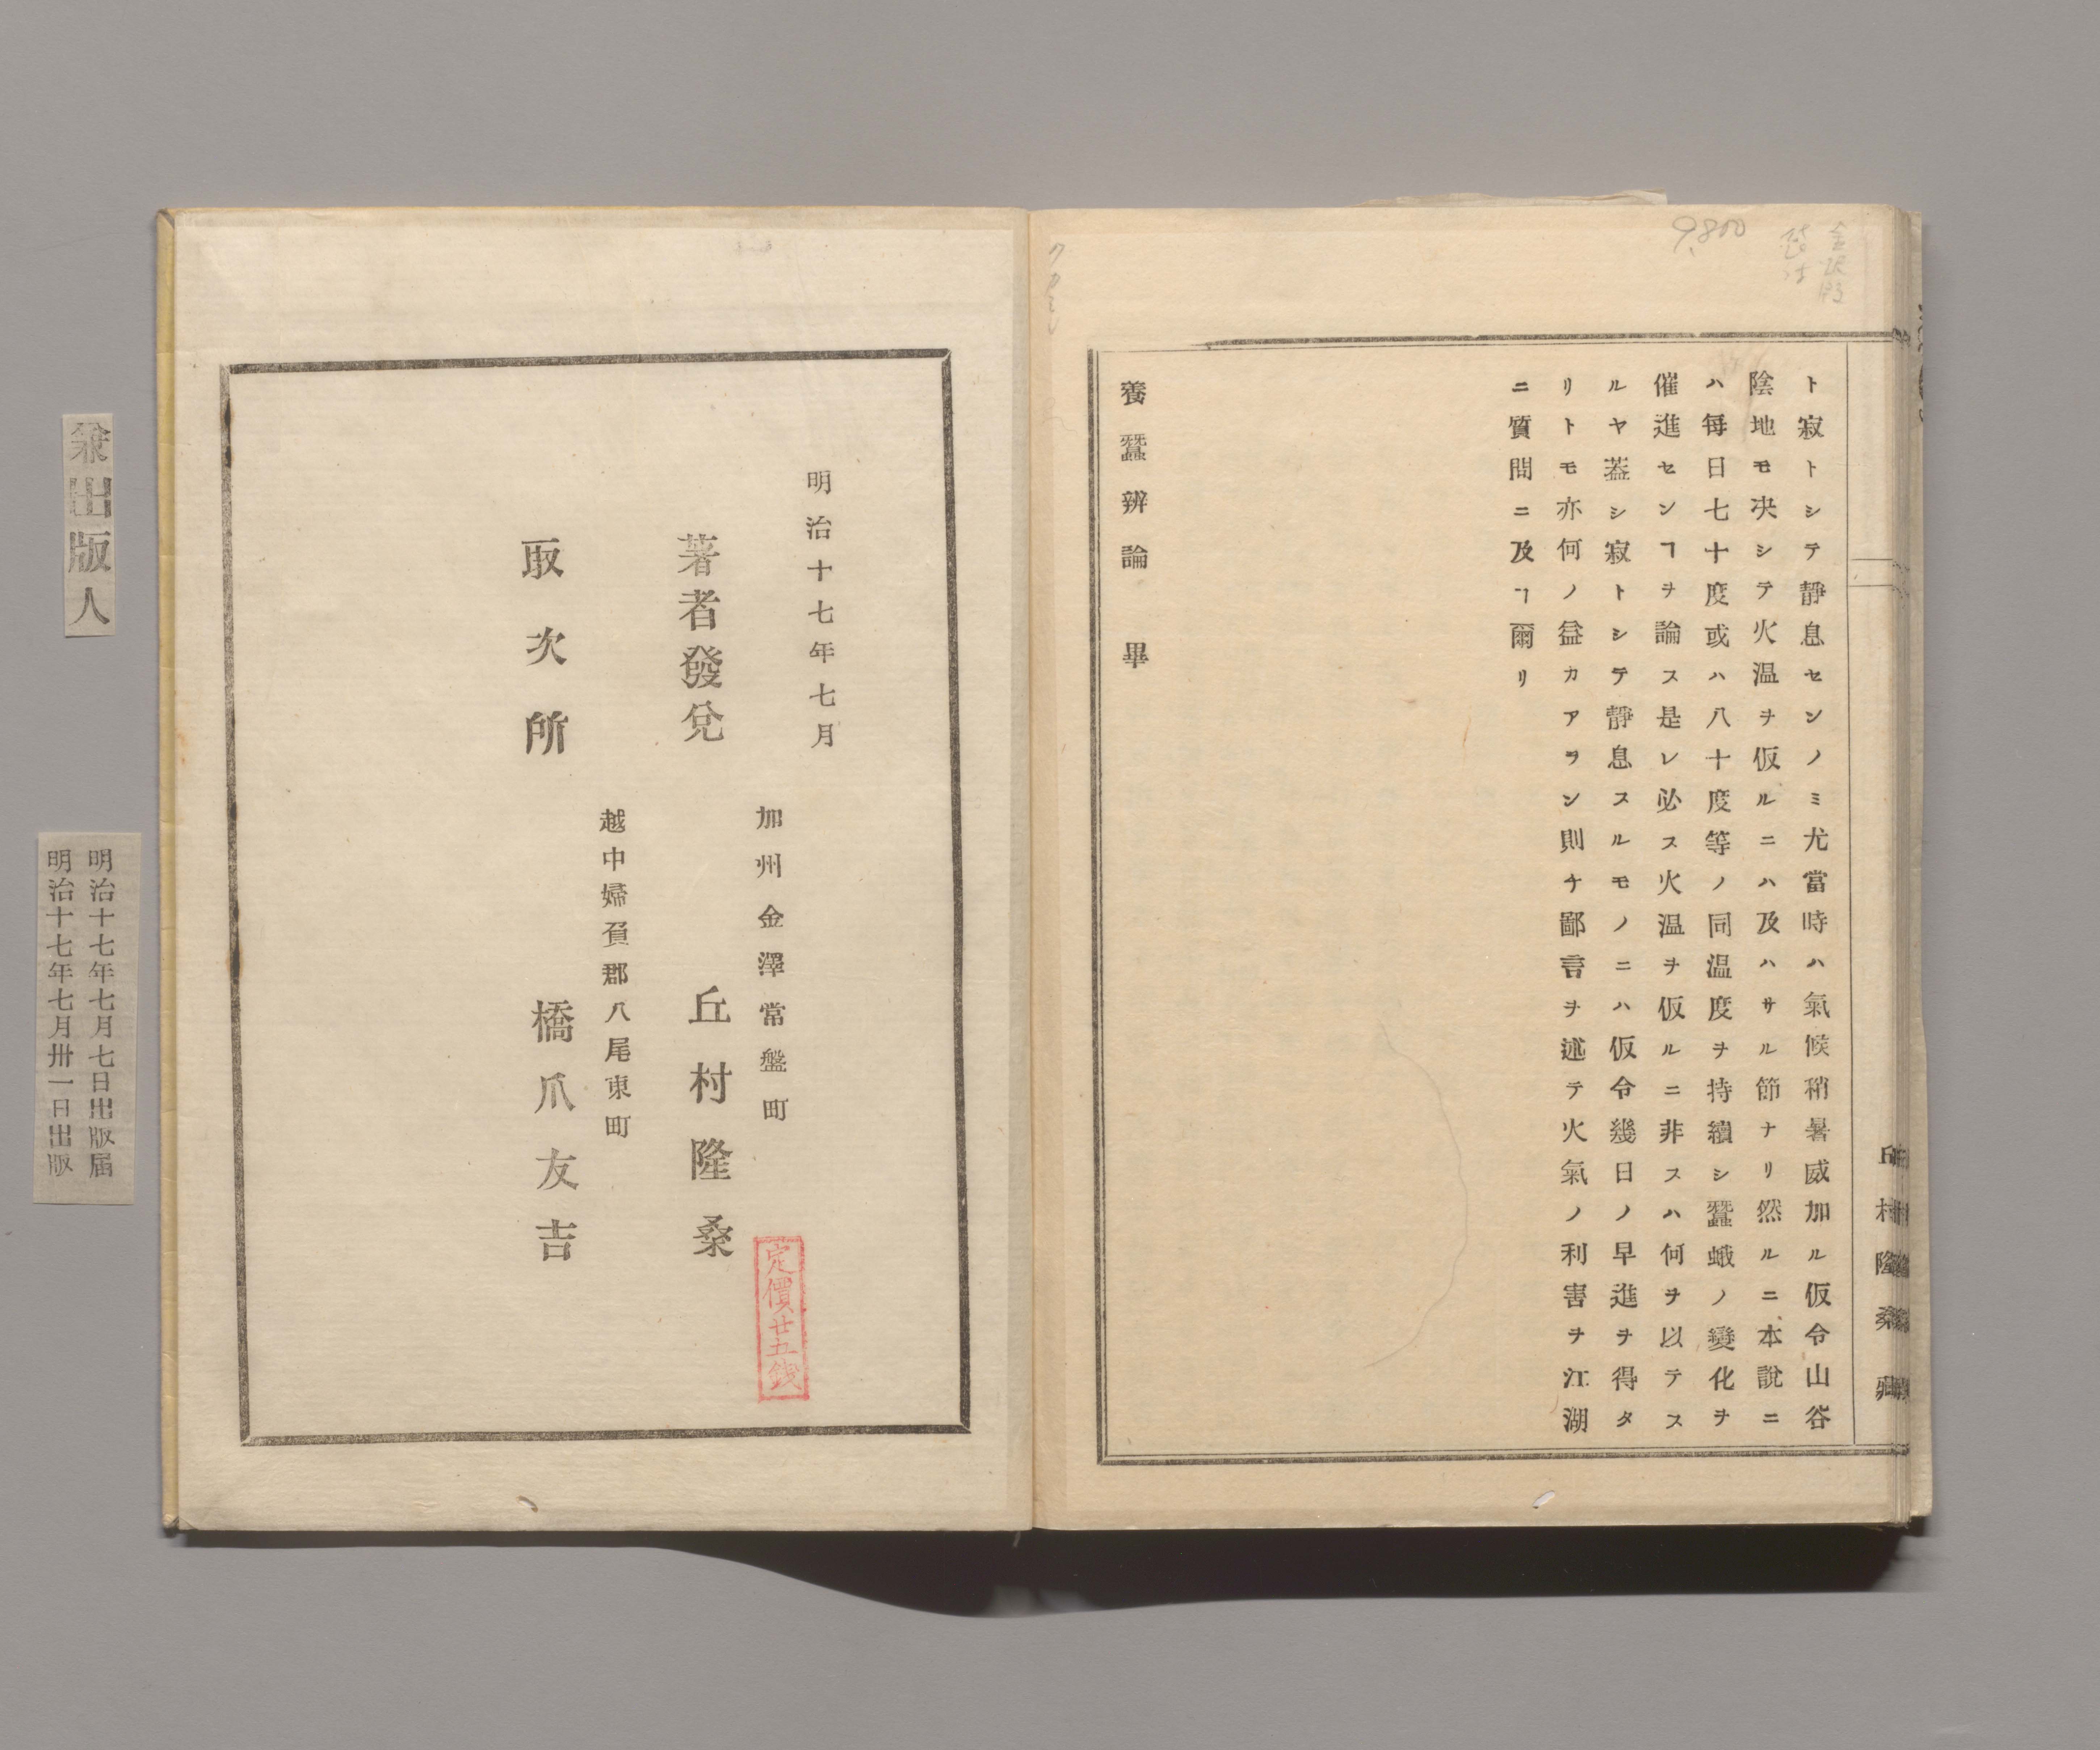 9,800
丘村隆桑藏
ト寂トシテ靜息センノミ尤當時ハ氣候稍暑威加ル仮令山谷
陰地モ决シテ火温ヲ仮ルニハ及ハサル節ナリ然ルニ本說ニ
ハ毎日七十度或ハ八十度等ノ同温度ヲ持續シ蠶蛾ノ變化ヲ
催進センヿヲ論ス是レ必ス火温ヲ仮ルニ非スハ何ヲ以テス
ルヤ葢シ寂トシテ靜息スルモノニハ仮令幾日ノ早進ヲ得タ
リトモ亦何ノ益カアヲン則チ鄙言ヲ述テ火氣ノ利害ヲ江湖
ニ質問ニ及ヿ爾リ
養蠶辨論 畢
明治十七年七月
加州金澤常盤町
著者發兌 丘村隆桑
越中婦負郡八尾東町
取次所 橋爪友吉
定價廿五錢
兼出版人
明治十七年七月七日出版届
明治十七年七月卅一日出版